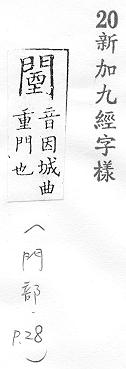 20 新加九經字樣
闉 音因城曲
重門也
(門部. P.28)